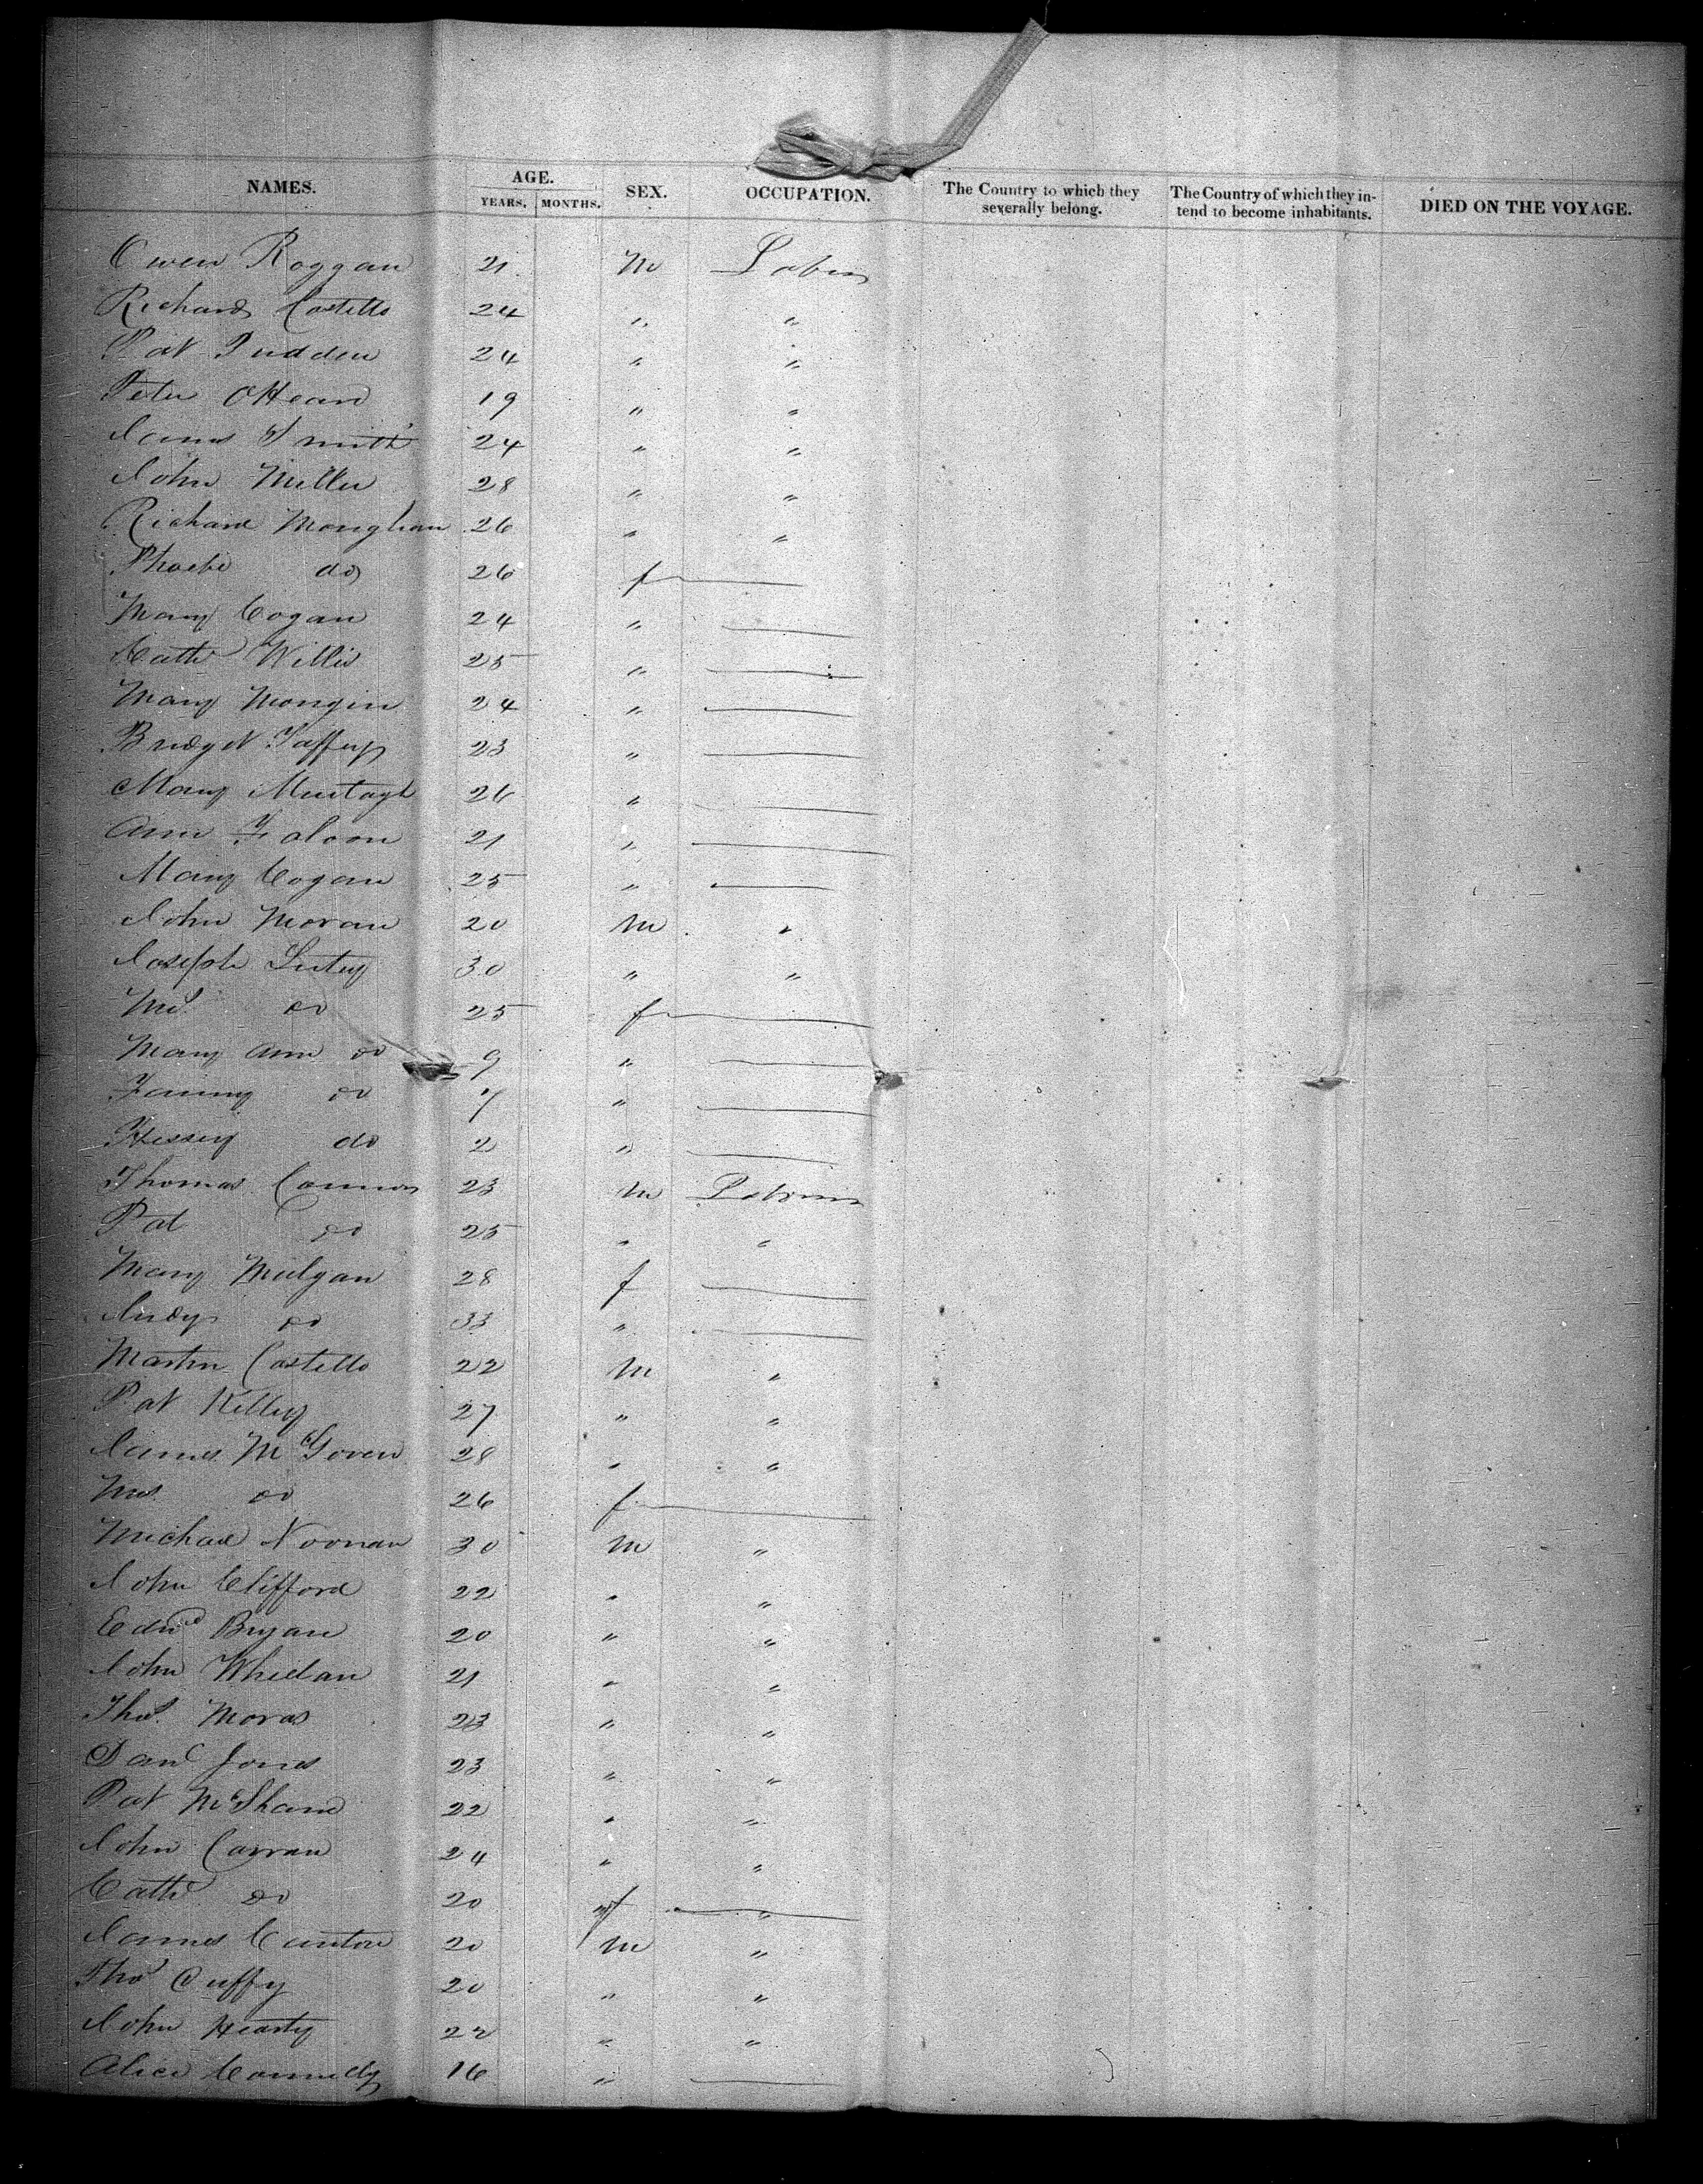 NAMES. AGE. YEARS. MONTHS. SEX. OCCUPATION. The Country to which they severally belong. The Country of which they intend to become inhabitants. DIED ON THE VOYAGE.
Owen Roggan 21 M Labor
Richard Costello 24 " "
Pat 24 " "
Peter OHeard 19 " "
James Smith 24 " "
John Miller 28 " "
Richard Monghan 26 " "
Phoebe do 26 f —
Mary Cogan 24 " —
Cathe Willis 25 " —
Mary Mongin 24 " —
Bridget Taffey 23 " —
Mary Murtagh 26 " —
Ann Faloon 21 " —
Mary Cogan 25 " —
John Moran 20 M "
Joseph 30 " "
Mrs do 25 f —
Mary Ann do 9 " —
Fanny do 7 " —
Hessey do 2 " —
Thomas Connor 23 M Laborer
Pat do 25 " "
Mary Mulgan 28 f —
Judy do 33 " —
Martin Costello 22 M "
Pat Killey 27 " "
James McGoven 28 " "
Mrs do 26 f —
Michael Noonan 30 M "
John Clifford 22 " "
Edwd Bryan 20 " "
John Whelan 21 " "
Thos. Moras 23 " "
Danl Jones 23 " "
Pat McShane 22 " "
John Carran 24 " "
Cathe do 20 f "
James Canton 20 M "
Thos Duffy 20 " "
John Hearty 22 " "
Alice Connedy 16 " —